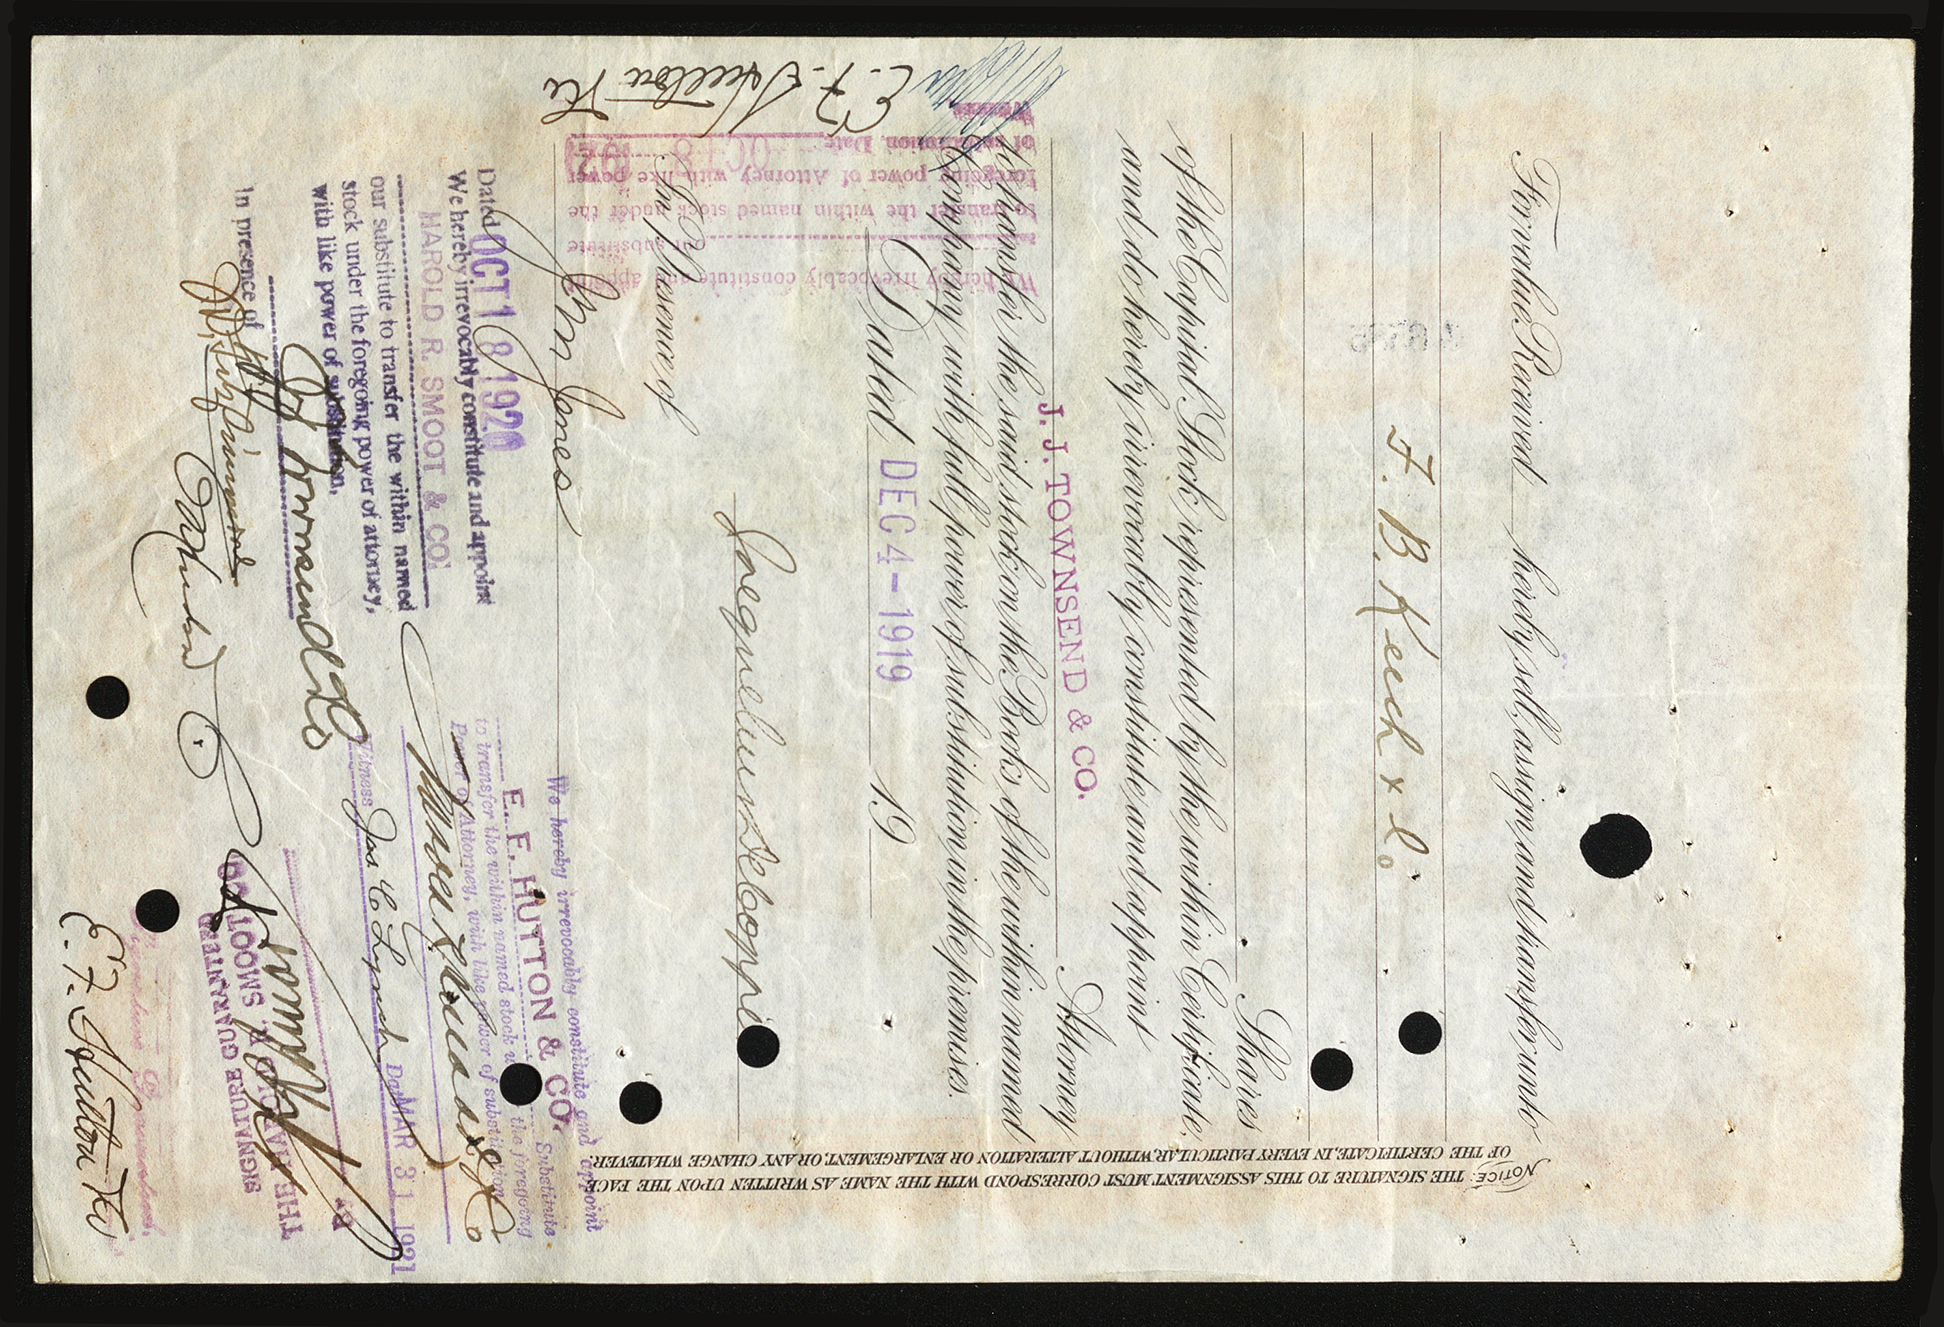 For value Received hereby sell, assign and transfer unto
F. B. Keech & Co.
Shares
of the Capital Stock represented by the within Certificate,
and do hereby irrevocably constitute and appoint
J. J. TOWNSEND & CO.
Attorney
to transfer the said stock on the Books of the within named
Company with full power of substitution in the premises.
Dated DEC 4-1919 19
In Presence of
John Jones
NOTICE: THE SIGNATURE TO THIS ASSIGNMENT MUST CORRESPOND WITH THE NAME AS WRITTEN UPON THE FACE
OF THE CERTIFICATE, IN EVERY PARTICULAR, WITHOUT ALTERATION OR ENLARGEMENT, OR ANY CHANGE WHATEVER.
We hereby irrevocably constitute and appoint
our substitute
to transfer the within named stock under the
foregoing power of Attorney with like power
of substitution, Date
Witness
E. F. Hutton & Co
Dated OCT 18 1920
We hereby irrevocably constitute and appoint
HAROLD R. SMOOT & CO.
our substitute to transfer the within named
stock under the foregoing power of attorney,
with like power of substitution,
In presence of
We hereby irrevocably constitute and appoint
E. F. HUTTON & CO. Substitute
to transfer the within named stock the foregoing
Power of Attorney, with like power of substitution
Witness Jas E Lynch Date MAR 31 1921
SIGNATURE GUARANTEED
E. F. Hutton & Co